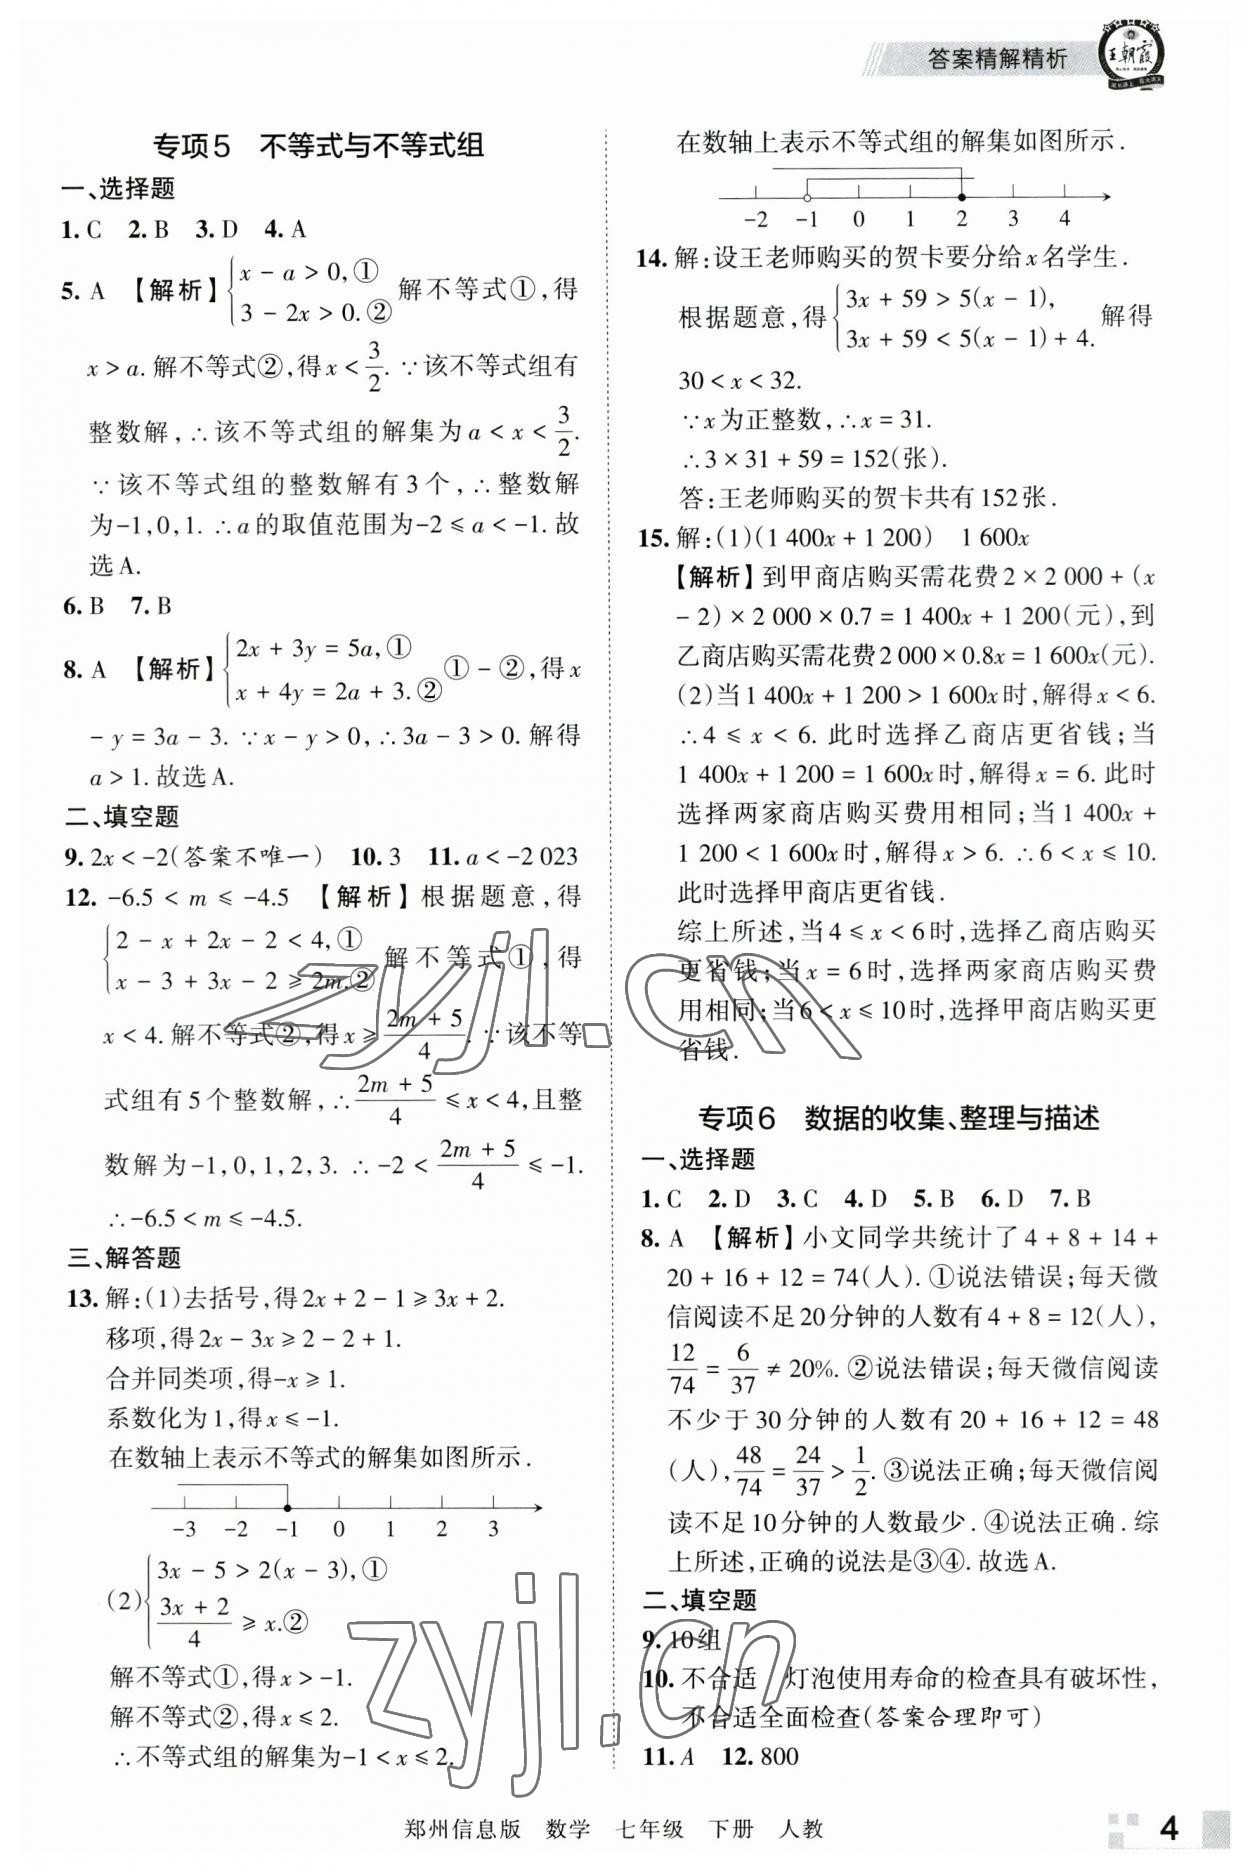 答案精解精析
王朝霞
专项5 不等式与不等式组
一、选择题
1. C 2. B 3. D 4. A
5. A 【解析】{x - a > 0, ① 3 - 2x > 0. ② 解不等式①, 得
x > a. 解不等式②, 得 x < 3/2. ∵该不等式组有
整数解, ∴该不等式组的解集为 a < x < 3/2.
∵该不等式组的整数解有3个, ∴整数解
为-1,0,1. ∴a的取值范围为-2 ≤ a < -1. 故
选A.
6. B 7. B
8. A 【解析】{2x + 3y = 5a, ① x + 4y = 2a + 3. ② ① - ②, 得 x
- y = 3a - 3. ∵x - y > 0, ∴3a - 3 > 0. 解得
a > 1. 故选A.
二、填空题
9. 2x < -2(答案不唯一) 10. 3 11. a < -2 023
12. -6.5 < m ≤ -4.5 【解析】根据题意, 得
{2 - x + 2x - 2 < 4, ① x - 3 + 3x - 2 ≥ 2m. ② 解不等式①, 得
x < 4. 解不等式②, 得 x ≥ (2m + 5)/4. ∵该不等
式组有5个整数解, ∴(2m + 5)/4 ≤ x < 4, 且整
数解为-1,0,1,2,3. ∴-2 < (2m + 5)/4 ≤ -1.
∴-6.5 < m ≤ -4.5.
三、解答题
13. 解:(1)去括号, 得2x + 2 - 1 ≥ 3x + 2.
移项, 得2x - 3x ≥ 2 - 2 + 1.
合并同类项, 得-x ≥ 1.
系数化为1, 得x ≤ -1.
在数轴上表示不等式的解集如图所示.
-3 -2 -1 0 1 2 3
(2){3x - 5 > 2(x - 3), ① (3x + 2)/4 ≥ x. ②
解不等式①, 得x > -1.
解不等式②, 得x ≤ 2.
∴不等式组的解集为-1 < x ≤ 2.
在数轴上表示不等式组的解集如图所示.
-2 -1 0 1 2 3 4
14. 解:设王老师购买的贺卡要分给x名学生.
根据题意, 得{3x + 59 > 5(x - 1), 3x + 59 < 5(x - 1) + 4. 解得
30 < x < 32.
∵x为正整数, ∴x = 31.
∴3 × 31 + 59 = 152(张).
答:王老师购买的贺卡共有152张.
15. 解:(1)(1 400x + 1 200) 1 600x
【解析】到甲商店购买需花费2 × 2 000 + (x
- 2) × 2 000 × 0.7 = 1 400x + 1 200(元), 到
乙商店购买需花费2 000 × 0.8x = 1 600x(元).
(2)当1 400x + 1 200 > 1 600x时, 解得x < 6.
∴4 ≤ x < 6. 此时选择乙商店更省钱; 当
1 400x + 1 200 = 1 600x时, 解得x = 6. 此时
选择两家商店购买费用相同; 当1 400x +
1 200 < 1 600x时, 解得x > 6. ∴6 < x ≤ 10.
此时选择甲商店更省钱.
综上所述, 当4 ≤ x < 6时, 选择乙商店购买
更省钱; 当x = 6时, 选择两家商店购买费
用相同; 当6 < x ≤ 10时, 选择甲商店购买更
省钱.
专项6 数据的收集、整理与描述
一、选择题
1. C 2. D 3. C 4. D 5. B 6. D 7. B
8. A 【解析】小文同学共统计了4 + 8 + 14 +
20 + 16 + 12 = 74(人). ①说法错误; 每天微
信阅读不足20分钟的人数有4 + 8 = 12(人),
12/74 = 6/37 ≠ 20%. ②说法错误; 每天微信阅读
不少于30分钟的人数有20 + 16 + 12 = 48
(人), 48/74 = 24/37 > 1/2. ③说法正确; 每天微信阅
读不足10分钟的人数最少. ④说法正确. 综
上所述, 正确的说法是③④. 故选A.
二、填空题
9. 10组
10. 不合适 灯泡使用寿命的检查具有破坏性,
不合适全面检查(答案合理即可)
11. A 12. 800
zyjl.cn
zyjl.cn
郑州信息版 数学 七年级 下册 人教
4